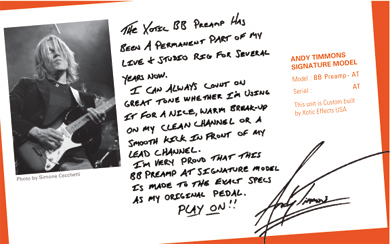 THE XOTIC BB PREAMP HAS
BEEN A PERMANENT PART OF MY
LIVE & STUDIO RIG FOR SEVERAL
YEARS NOW.
I CAN ALWAYS COUNT ON
GREAT TONE WHETHER I'M USING
IT FOR A NICE, WARM BREAK-UP
ON MY CLEAN CHANNEL OR A
SMOOTH KICK IN FRONT OF MY
LEAD CHANNEL.
I'M VERY PROUD THAT THIS
BB PREAMP AT SIGNATURE MODEL
IS MADE TO THE EXACT SPECS
AS MY ORIGINAL PEDAL.
PLAY ON!!
Photo by Simone Cecchetti
ANDY TIMMONS
SIGNATURE MODEL
Model : BB Preamp - AT
Serial : AT
This unit is Custom built
by Xotic Effects USA
Andy Timmons